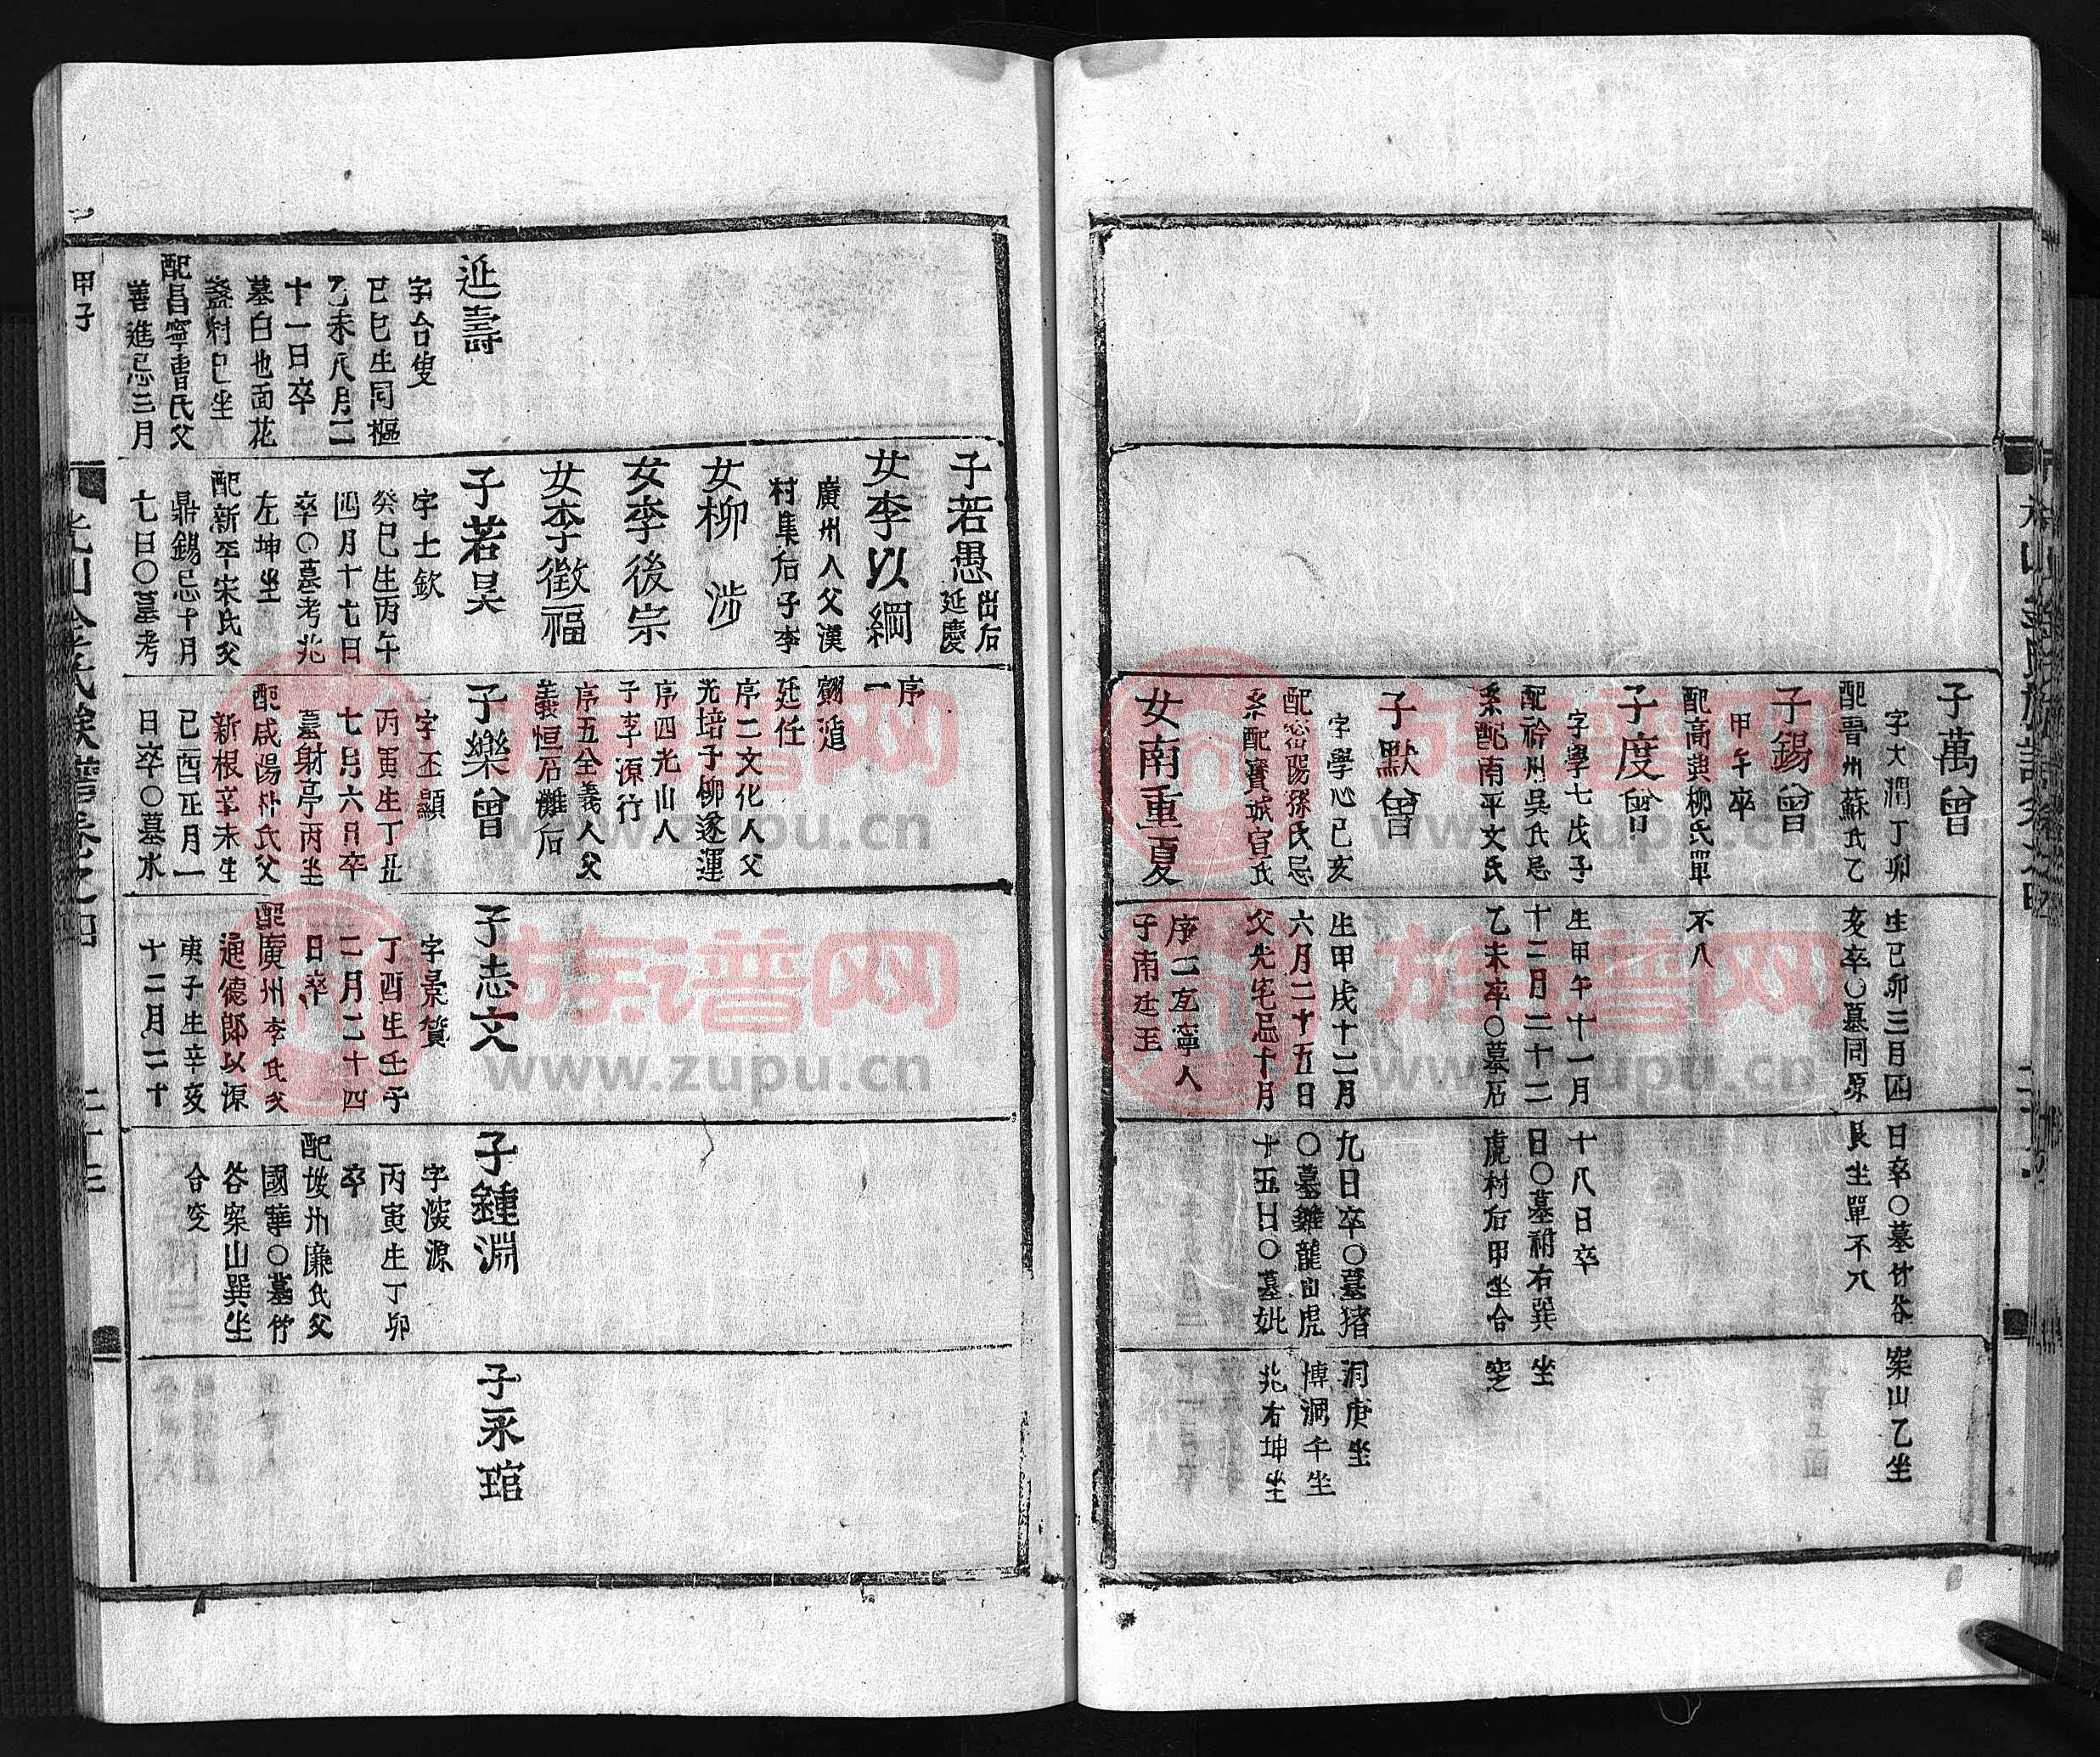 子萬曾
字大潤丁卯
生己卯三月四
日卒〇墓竹谷
案山乙坐
配晋州蘇氏乙
亥卒〇墓同原
艮坐單不入
子錫曾
甲午卒
配高興柳氏單
不入
子度曾
字學七戊子
生甲午十一月
十八日卒
配衿州吳氏忌
十二月二十二
日〇墓祔右巽
坐
系配南平文氏
乙未卒〇墓店
虎村右甲坐合
窆
子默曾
字學心己亥
生甲戌十二月
九日卒〇墓猪
洞庚坐
配密陽孫氏忌
六月二十五日
〇墓雞龍山虎
博洞午坐
系配寳城宣氏
父光宅忌十月
十五日〇墓妣
兆右坤坐
女南重夏
序二宜寧人
子南廷王
子若愚
出后
延慶
女李以綱
序
一
廣州人父漢
翻道
村集后子李
廷任
女柳涉
序二文化人父
光培子柳遂運
女李後宗
序四光山人
子李源行
女李徵福
序五全義人父
義恒后儺后
延壽
字台叟
己巳生同樞
乙未八月二
十一日卒
墓白也面花
盞村巳坐
配昌寧曹氏父
善進忌三月
子若昊
字士欽
癸巳生丙午
四月十七日
卒〇墓考兆
左坤坐
配新平宋氏父
鼎錫忌十月
七日〇墓考
子樂曾
字丕顯
丙寅生丁丑
七月六日卒
墓射亭丙坐
配咸陽朴氏父
新根辛未生
己酉正月一
日卒〇墓水
子志文
字景贊
丁酉生壬子
二月二十四
日卒
配廣州李氏父
通德郎以源
庚子生辛亥
十二月二十
子鍾淵
字淩源
丙寅生丁卯
卒
配坡州廉氏父
國華〇墓竹
谷案山巽坐
合窆
子永琯
甲子
二十三
族谱网
www.zupu.cn
族谱网
www.zupu.cn
族谱网
www.zupu.cn
族谱网
www.zupu.cn